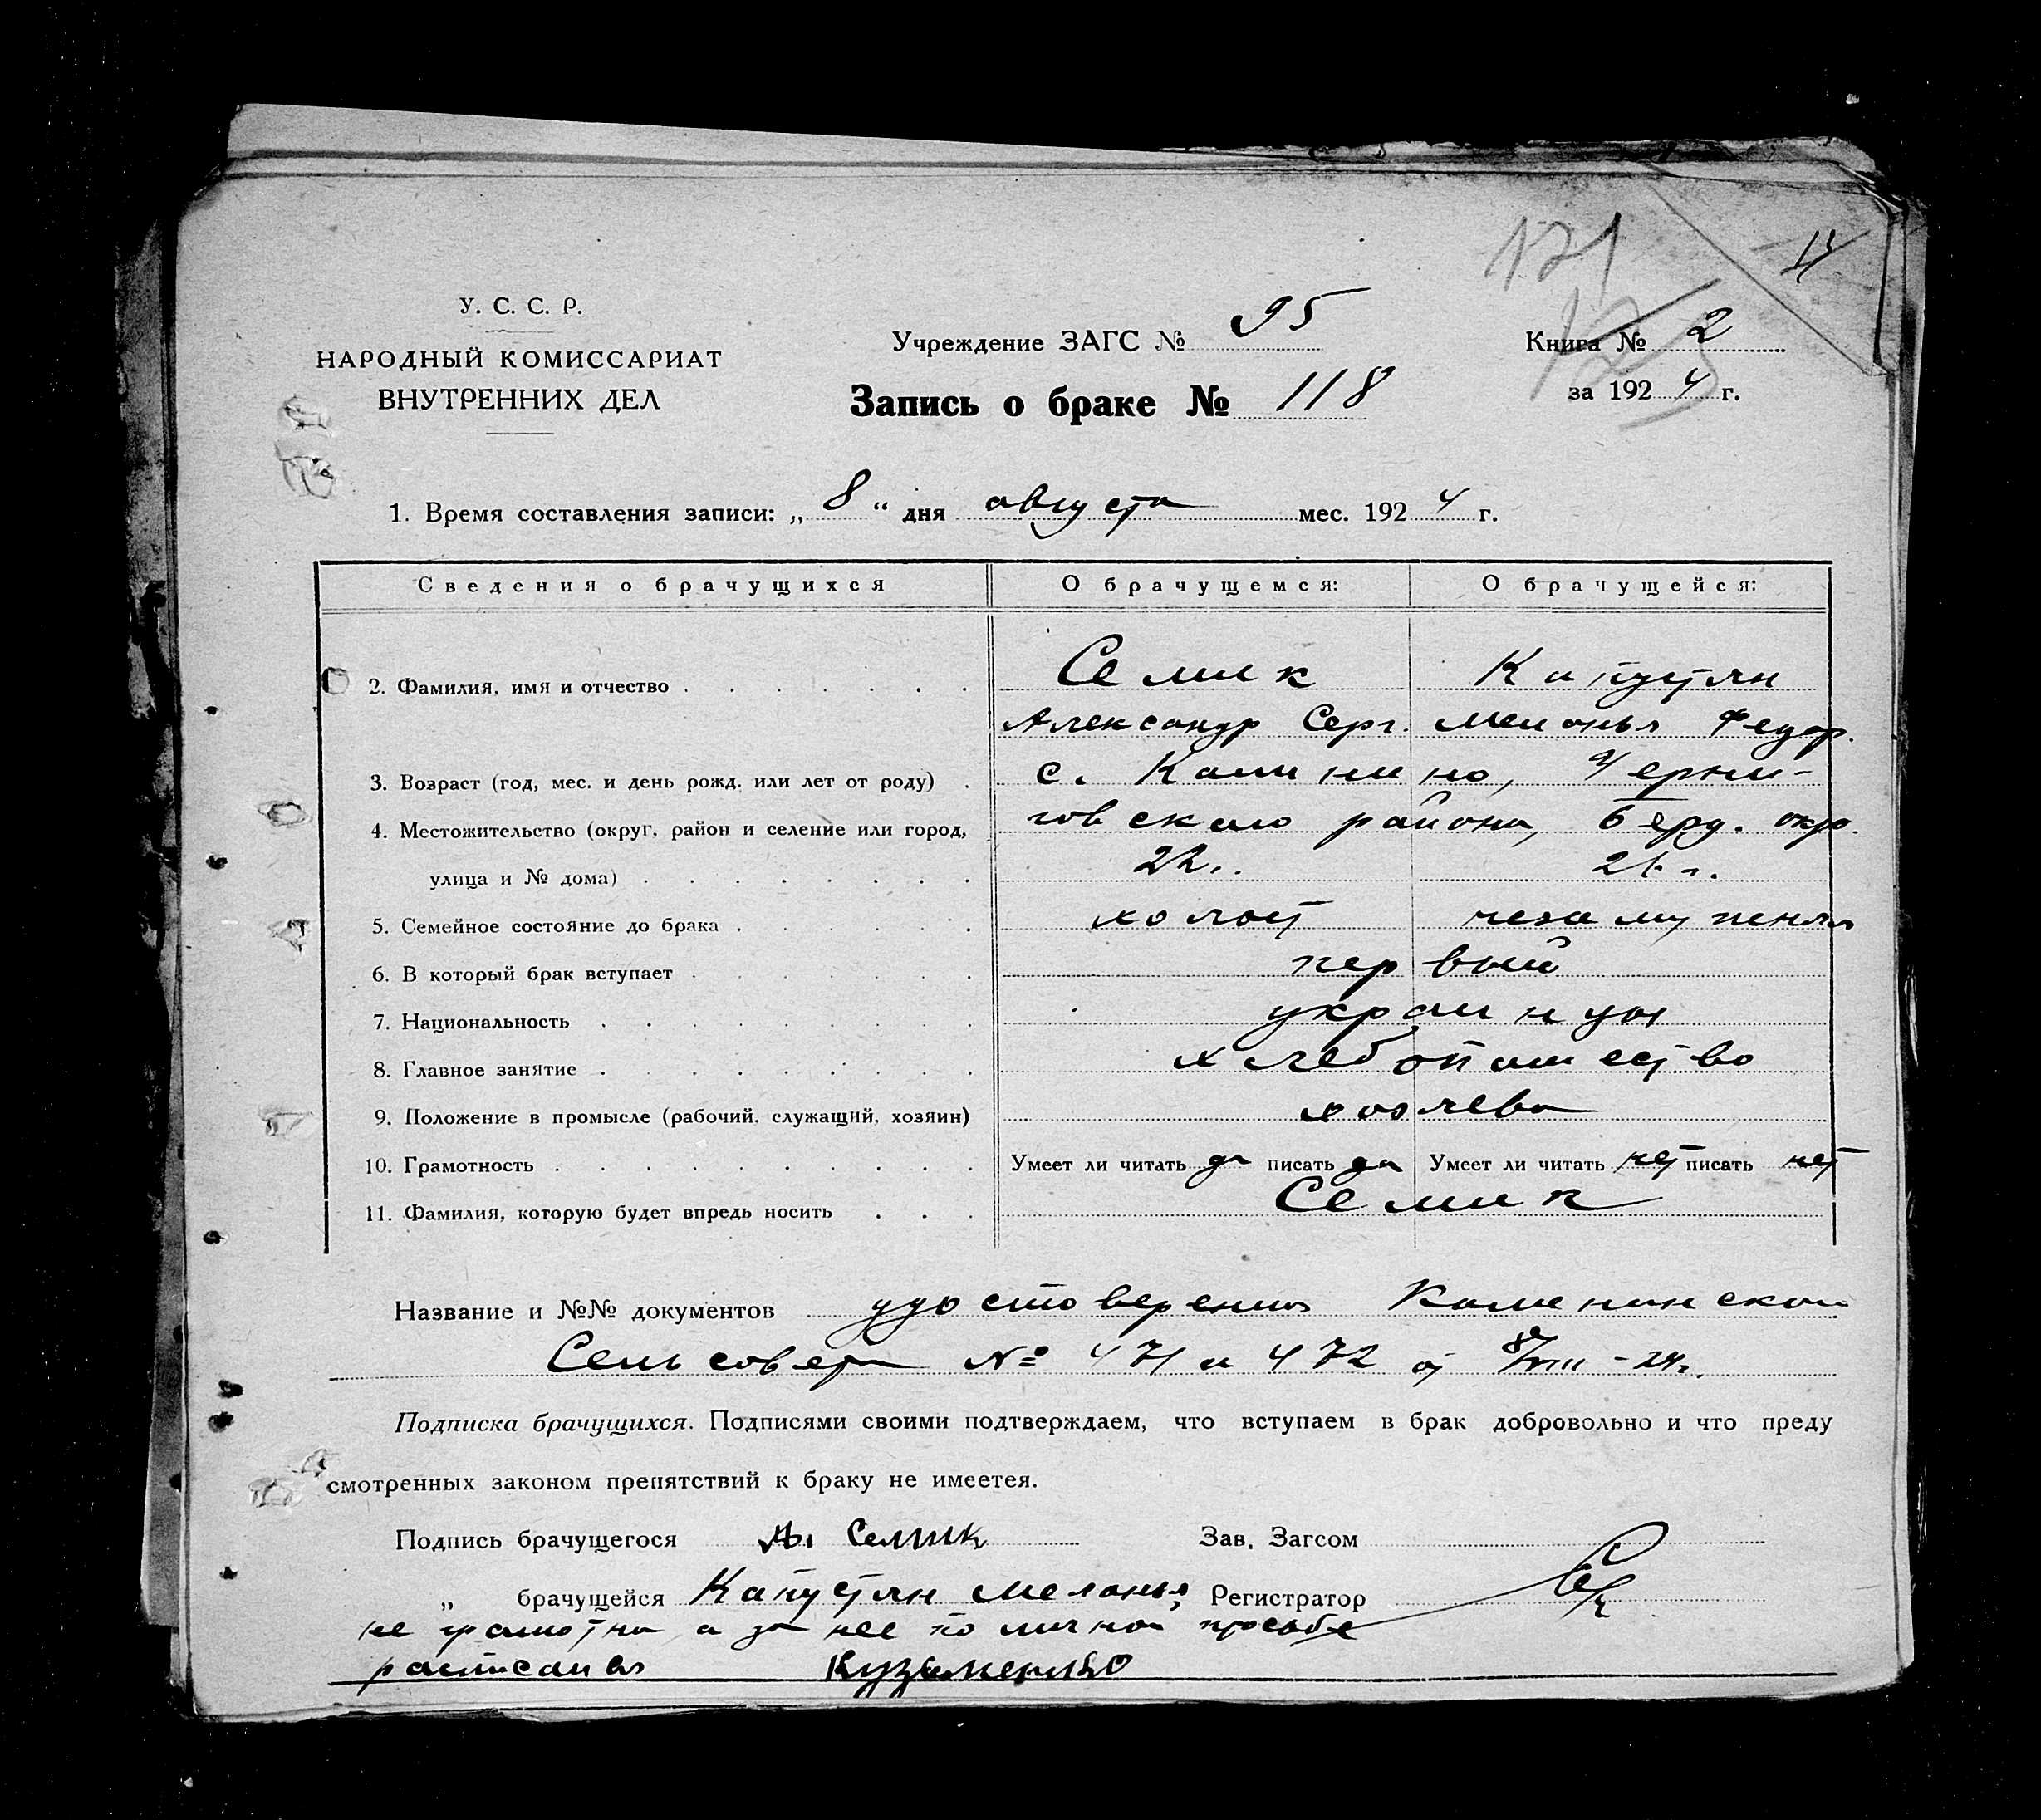 121
14
У. С. С. Р.
НАРОДНЫЙ КОМИССАРИАТ
ВНУТРЕННИХ ДЕЛ
Учреждение ЗАГС № 95
Запись о браке № 118
Книга № 2
за 1924 г.
1. Время составления записи: „ 8 “ дня августа мес. 1924 г.
Сведения о брачущихся О брачущемся: О брачущейся:
2. Фамилия, имя и отчество Семик Капустян
Александр Серг. Меланья Федор.
3. Возраст (год, мес. и день рожд. или лет от роду) с. Калинино, Черни-
4. Местожительство (округ, район и селение или город, говского района, Берд. окр.
улица и № дома) 22. 21 г.
5. Семейное состояние до брака холост незамужняя
6. В который брак вступает первый
7. Национальность украинцы
8. Главное занятие хлебопашество
9. Положение в промысле (рабочий, служащий, хозяин) хозяева
10. Грамотность Умеет ли читать да писать да Умеет ли читать нет писать нет
11. Фамилия, которую будет впредь носить Семик
Название и №№ документов удостоверения
Сельсовета № 471 и 472 от 8/VIII - 24 г.
Подписка брачущихся. Подписями своими подтверждаем, что вступаем в брак добровольно и что преду
смотренных законом препятствий к браку не имеется.
Подпись брачущегося Ал Семик Зав. Загсом
„ брачущейся Капустян Меланья, Регистратор
не грамотна а за нее по личной просьбе
расписался Кузьменко